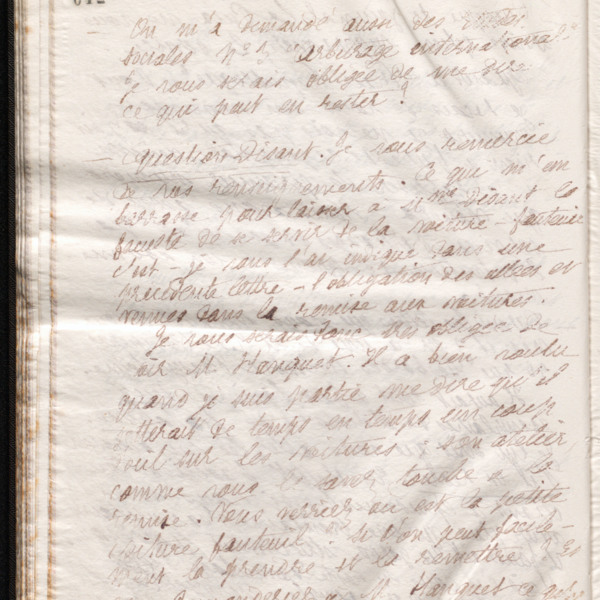 612
— On m'a demandé aussi des études
sociales n° 2 "arbitrage international"
je vous serais obligée de me dire
ce qui peut en rester ?
— Question Disant. Je vous remercie
de vos renseignements. Ce qui m'em
barrasse pour laisser à Mme Disant la
faculté de se servir de la voiture-fauteuil
c'est – je vous l'ai indiqué dans une
précédente lettre – l'obligation des allées et
venues dans la remise aux voitures.
Je vous serais donc très obligée de
voir M. Hanquet. Il a bien voulu
quand je suis partie me dire qu'il
jetterait de temps en temps un coup
d'œil sur les voitures : son atelier
comme vous le savez touche à la
remise. Vous verriez où est la petite
voiture fauteuil, si l'on peut facile-
ment la prendre et la remettre
M. Hanquet ce qu'il